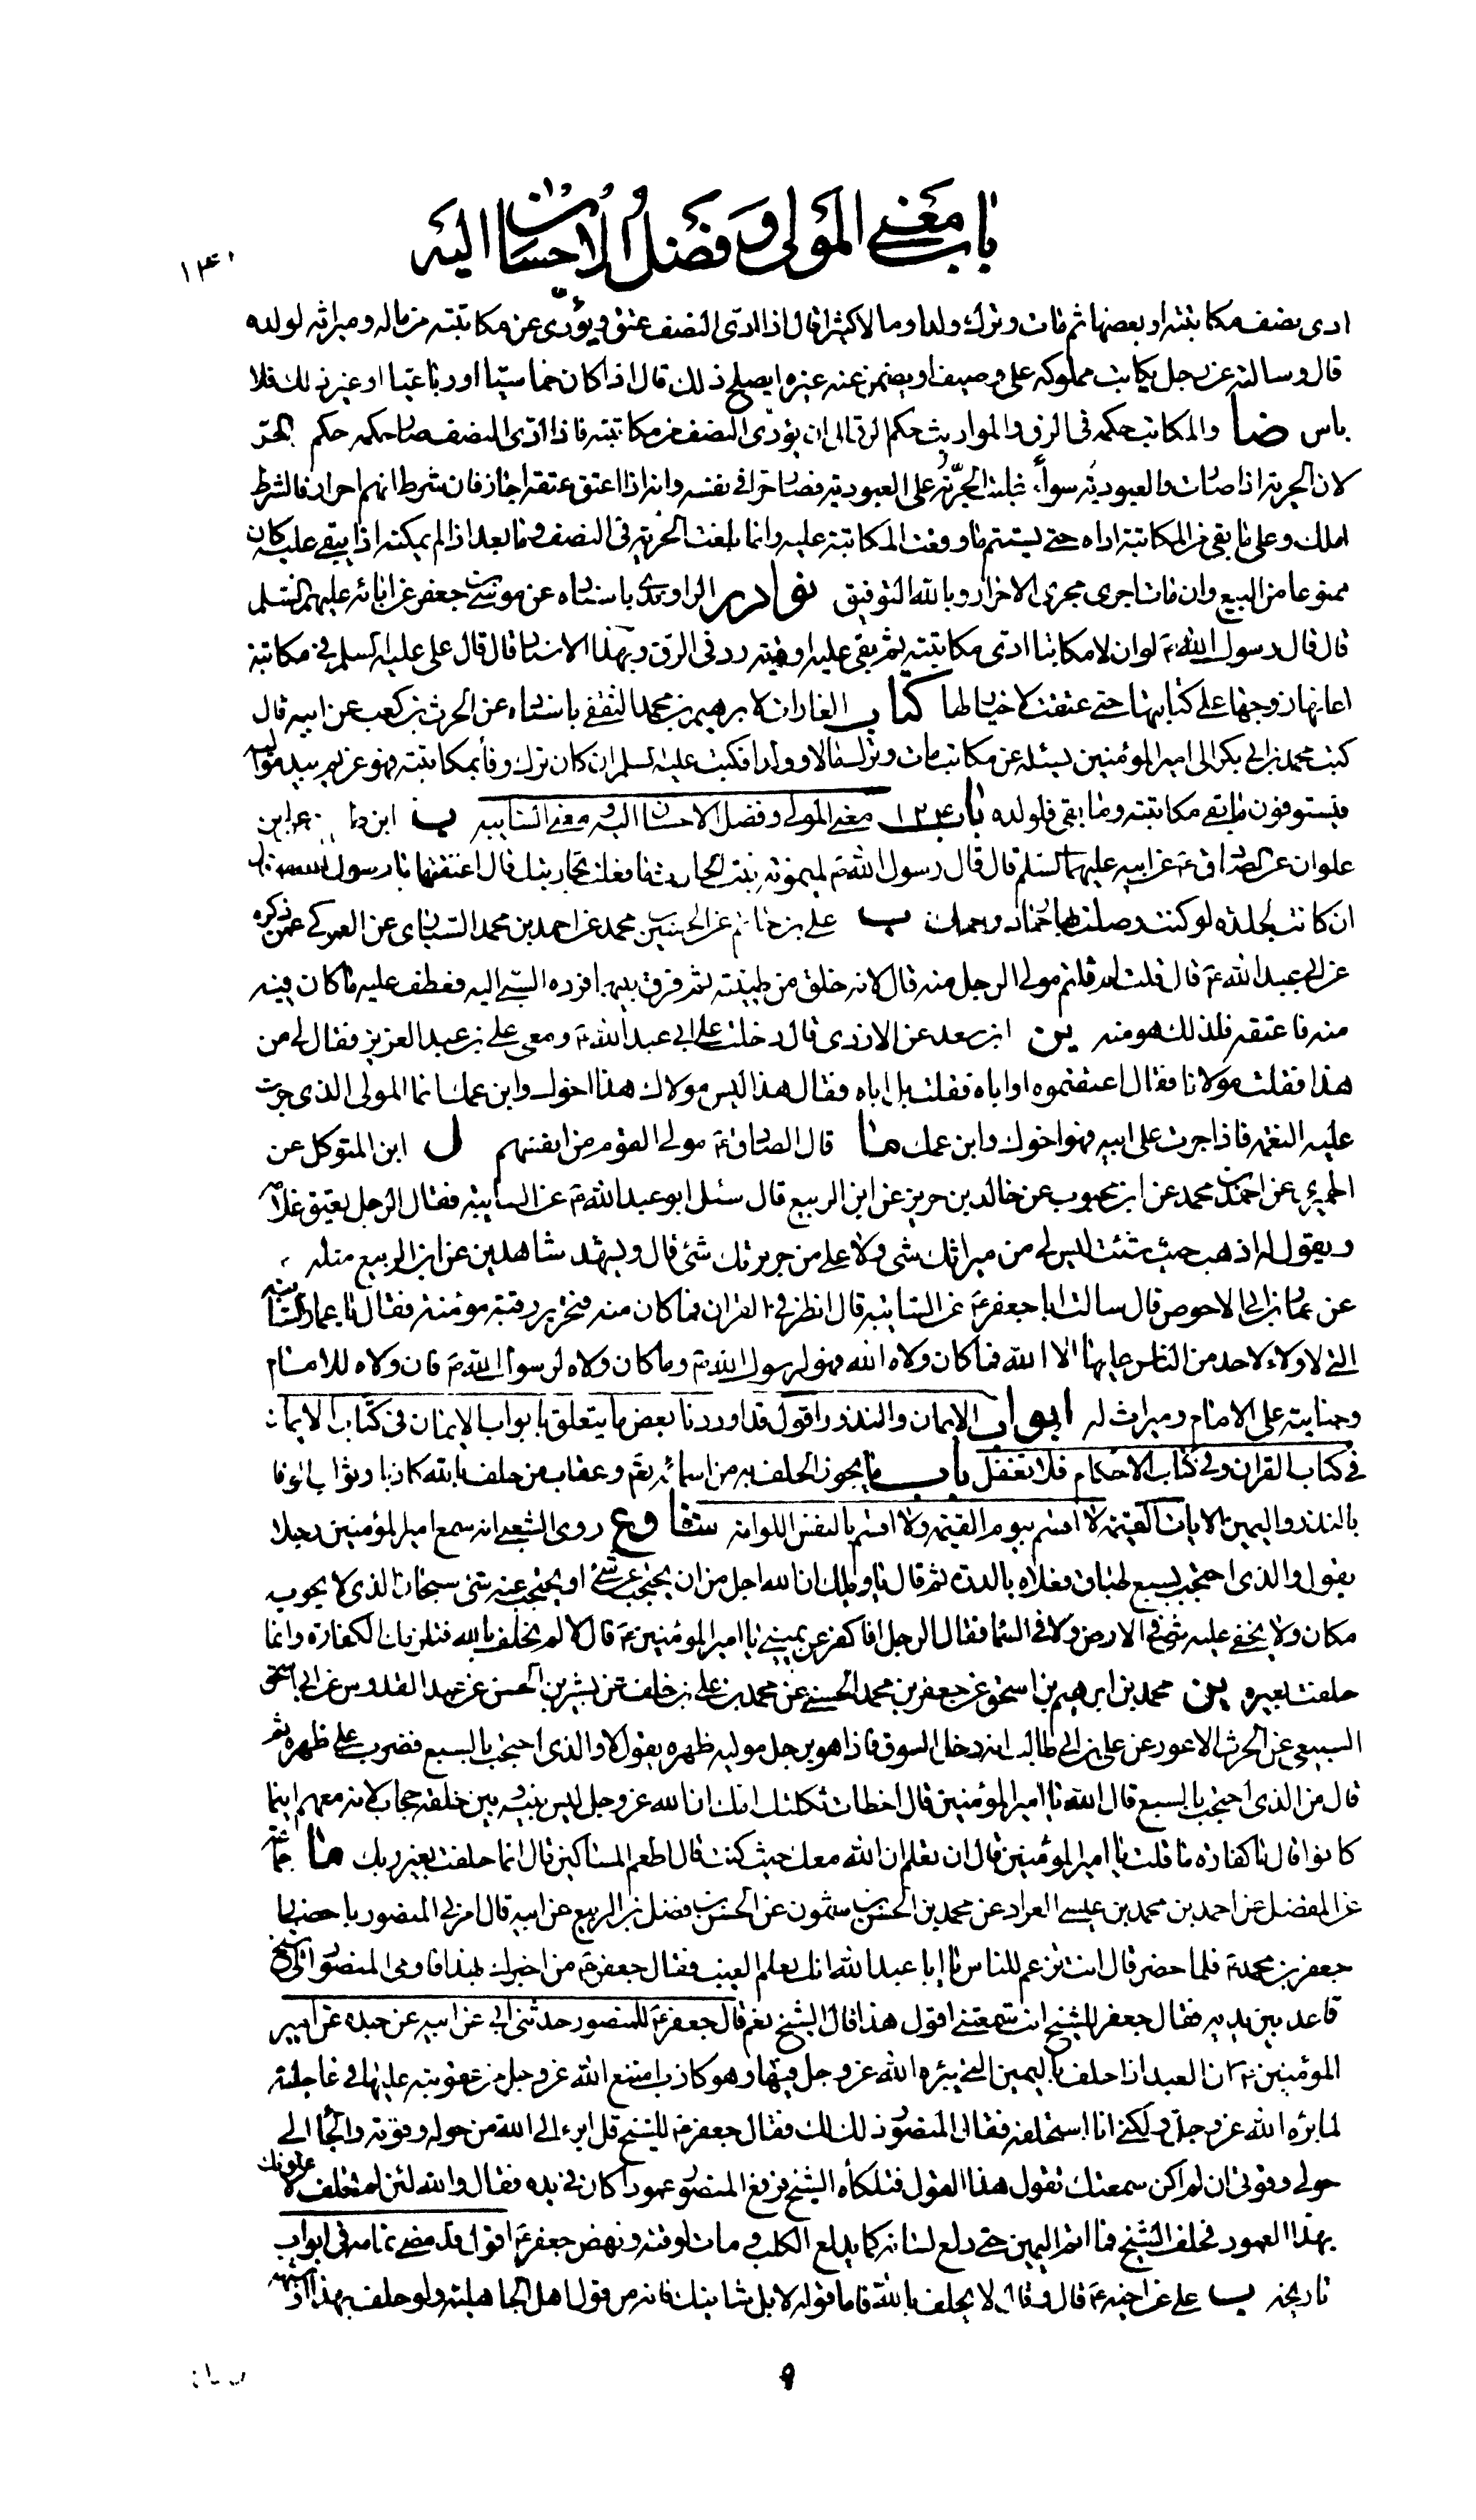 باب معنى المولى وفضل الاحسان اليه
١٣٠
ادى نصف مكاتبته او بعضها ثم مات وترك ولدا ومالا كثيرا قال اذا ادى النصف عتق ويؤدى عن مكاتبته من ماله وميراثه لولده
قال وسالته عن رجل يكاتب مملوكه على وصيف او يضمن عنه غيره ايصلح ذلك قال اذا كان خماسيا او رباعيا او غير ذلك فلا
باس ضا والمكاتب حكمه فى الرق والمواريث حكم الرق الى ان يؤدى النصف من مكاتبته فاذا ادى النصف صار حكمه حكم الحر
لان الحرية اذا صارت والعبودية سواء غلبت الحرية على العبودية فصار حرا فى نفسه وانه اذا اعتق عتقه اجاز فان شرط انهم احرار فالشرط
املك وعلى ما بقى من المكاتبة اداه حتى يستتم ما وقعت المكاتبة عليه وانما بلغت الحرية فى النصف وما بعد اذا لم يمكنه اذا يبقى عليه كان
ممنوعا من البيع وان مات اجرى مجرى الاحرار وبالله التوفيق نوادر الراوندى باسناده عن موسى بن جعفر عن ابائه عليهم السلم
قال قال رسول الله ص لو ان لامكاتبا ادى مكاتبته ثم بقى عليه اوقيته رد فى الرق وبهذا الاسناد قال قال على عليه السلم فى مكاتبة
اعانها زوجها على كتابتها حتى عتقت لا خيار لها كتاب الغارات لابرهيم بن محمد الثقفى باسناده عن الحرث بن كعب عن ابيه قال
كتب محمد بن ابى بكر الى امير المؤمنين يسئله عن مكاتب مات وترك مالا وولدا فكتب عليه السلم ان كان ترك وفاء بمكاتبته فهو غريم بيد مواليه
فيستوفون ما بقى مكاتبته وما بقى فلولده باب ١٢٤ معنى المولى وفضل الاحسان اليه ومعنى السائبه ب ابن عن ابن
علوان عن الصادق ع عن ابيه عليهما السلم قال قال رسول الله ص لميمونة بنت الحارث ما فعلت بجاريتك قال اعتقتها يا رسول الله قال
ان كانت لجلدة لو كنت وصلت بها رحمك ب على بن حاتم عن الحسين بن محمد عن احمد بن محمد السيارى عن العمركى عمن ذكره
عن ابى عبد الله ع قال قلت له لم قلتم مولى الرجل منه قال لانه خلق من طينته ثم فرق بينهما فرده السبى اليه فعطف عليه ما كان فيه
منه فاعتقه فلذلك هو منه ين ابن سعد عن الازدى قال دخلت على ابى عبد الله ع ومعى على بن عبد العزيز فقال لى من
هذا فقلت مولانا فقال اعتقتموه او اباه فقلت بل اباه فقال هذا ليس مولاك هذا اخوك وابن عمك انما المولى الذى جرت
عليه النعمة فاذا جرت على ابيه فهو اخوك وابن عمك ما قال الصادق ع مولى القوم من انفسهم ل ابن المتوكل عن
الحميرى عن احمد بن محمد عن ابن محبوب عن خالد بن جرير عن ابى الربيع قال سئل ابو عبد الله ع عن السايبة فقال الرجل يعتق غلامه
ويقول له اذهب حيث شئت ليس لى من ميراثك شئ ولا على من جريرتك شئ قال ويشهد شاهدين عن ابى الربيع مثله
عن عمار بن ابى الاحوص قال سالت ابا جعفر ع عن السايبه قال انظر فى القران فما كان منه فتحرير رقبة مؤمنة فقال يا عمار السايبه
التى لا ولاء لاحد من الناس عليها الا الله فما كان ولاه الله فهو لرسول الله ص وما كان ولاه لرسول الله ص فان ولاه للامام
وجنايته على الامام وميراثه له ابواب الايمان والنذور اقول قد اوردنا بعض ما يتعلق بابواب الايمان فى كتاب الايمان
فى كتاب القران وفى كتاب الاحكام فلا تغفل باب ما يجوز الحلف به من اسمائه تعم وعقاب من حلف بالله كاذبا وثواب الوفا
بالنذر واليمين الايات القيمة لا اقسم بيوم القيمة ولا اقسم بالنفس اللوامة شا وع روى الشعبى انه سمع امير المؤمنين رجلا
يقول والذى احتجب بسبع طباق فعلاه بالدرة ثم قال يا ويلك ان الله اجل من ان يحتجب عن شئ او يحتجب عنه شئ سبحان الذى لا يحويه
مكان ولا يخفى عليه شئ فى الارض ولا فى السماء فقال الرجل افاكفر عن يمينى يا امير المؤمنين ع قال لا لم تحلف بالله فتلزمك الكفارة وانما
حلفت بغيره ين محمد بن ابرهيم بن اسحق عن جعفر بن محمد الحسنى عن محمد بن على بن خلف عن بشر بن الحسن عن عبد القدوس عن ابى اسحق
السبيعى عن الحرث الاعور عن على بن ابى طالب انه دخل السوق فاذا هو برجل موليه ظهره يقول لا والذى احتجب بالسبع فضرب على ظهره ثم
قال من الذى احتجب بالسبع قال الله يا امير المؤمنين قال اخطات ثكلتك امك ان الله عز وجل ليس بينه وبين خلقه حجاب لانه معهم اينما
كانوا قال ما كفارة ما قلت يا امير المؤمنين قال ان تعلم ان الله معك حيث كنت قال اطعم المساكين قال انما حلفت بغير ربك ما جماعة
عن المفضل عن احمد بن محمد بن عيسى العراد عن محمد بن الحسن بن شمون عن الحسن بن فضل بن الربيع عن ابيه قال امر بى المنصور باحضار
جعفر بن محمد ع فلما حضر قال انت تزعم للناس يا ابا عبد الله انك تعلم الغيب فقال جعفر ع من اخبرك بهذا فاومى المنصور الى شيخ
قاعد بين يديه فقال جعفر للشيخ انت سمعتنى اقول هذا قال الشيخ نعم قال جعفر ع للمنصور حدثنى ابى عن ابيه عن جده عن امير
المؤمنين ع ان العبد اذا حلف باليمين التى ينزه الله عز وجل فيها وهو كاذب امتنع الله عز وجل من عقوبته عليها فى عاجلته
لما نزه الله عز وجل ولكنى انا استحلفه فقال المنصور ذلك لك فقال جعفر ع للشيخ قل ابرء الى الله من حوله وقوته والجا الى
حولى وقوتى ان لم اكن سمعتك تقول هذا القول فتلكاه الشيخ فرفع المنصور عمودا كان فى يده فقال والله لئن لم تحلف لاعلونك
بهذا العمود فحلف الشيخ فما اتم اليمين حتى دلع لسانه كما يدلع الكلب ومات لوقته ونهض جعفر ع اقول قد مضى تمامه فى ابواب
تاريخه ب على عن اخيه ع قال وقال لا يحلف بالله فاما قوله لا بل شانيك فانه من قول اهل الجاهلية ولو حلف بهذا